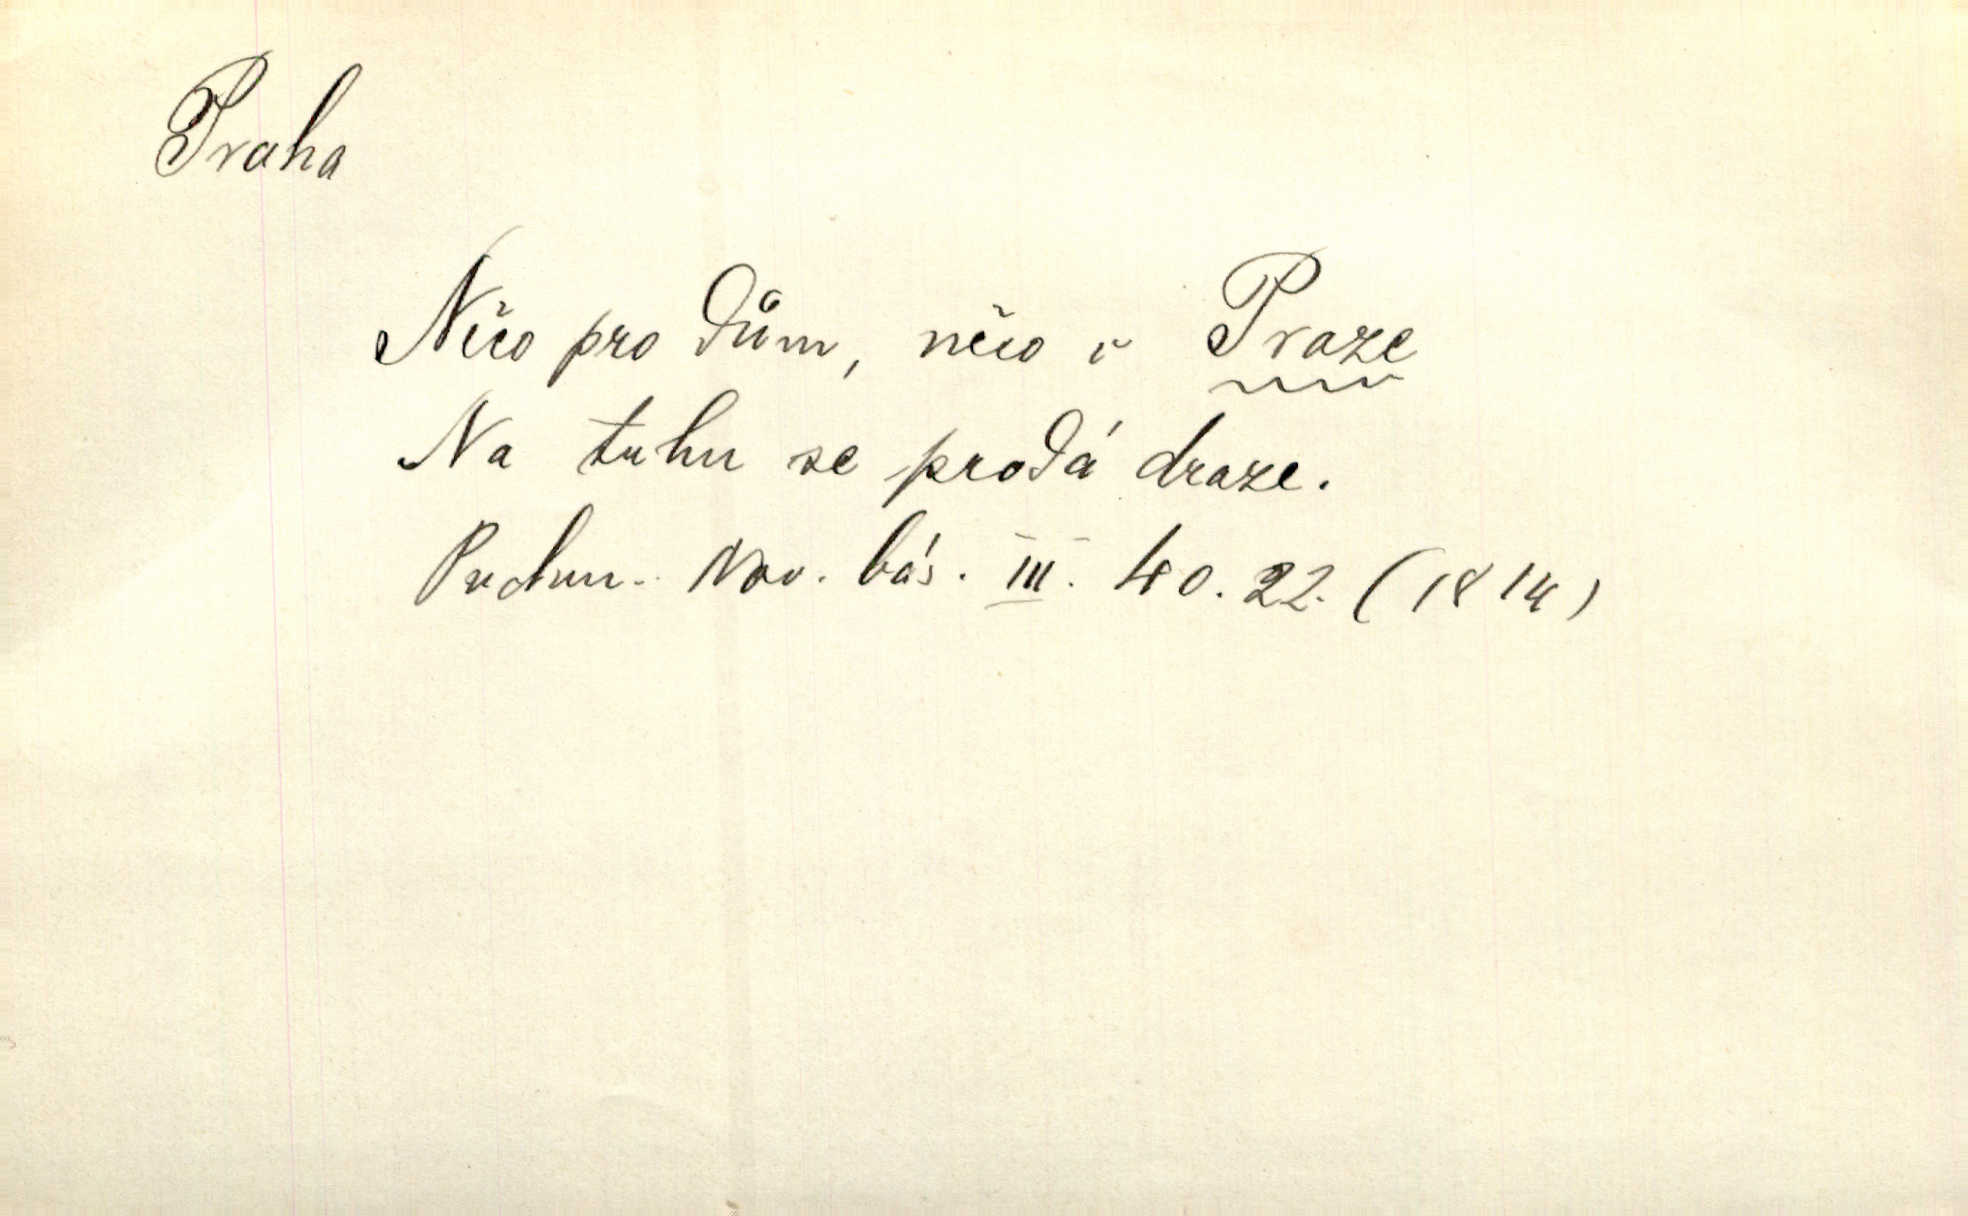 Praha
Něco pro dům, něco v Praze
Na tuhu se prodá draze.
Puchm. Nov. bás. III. 40. 22. (1814)